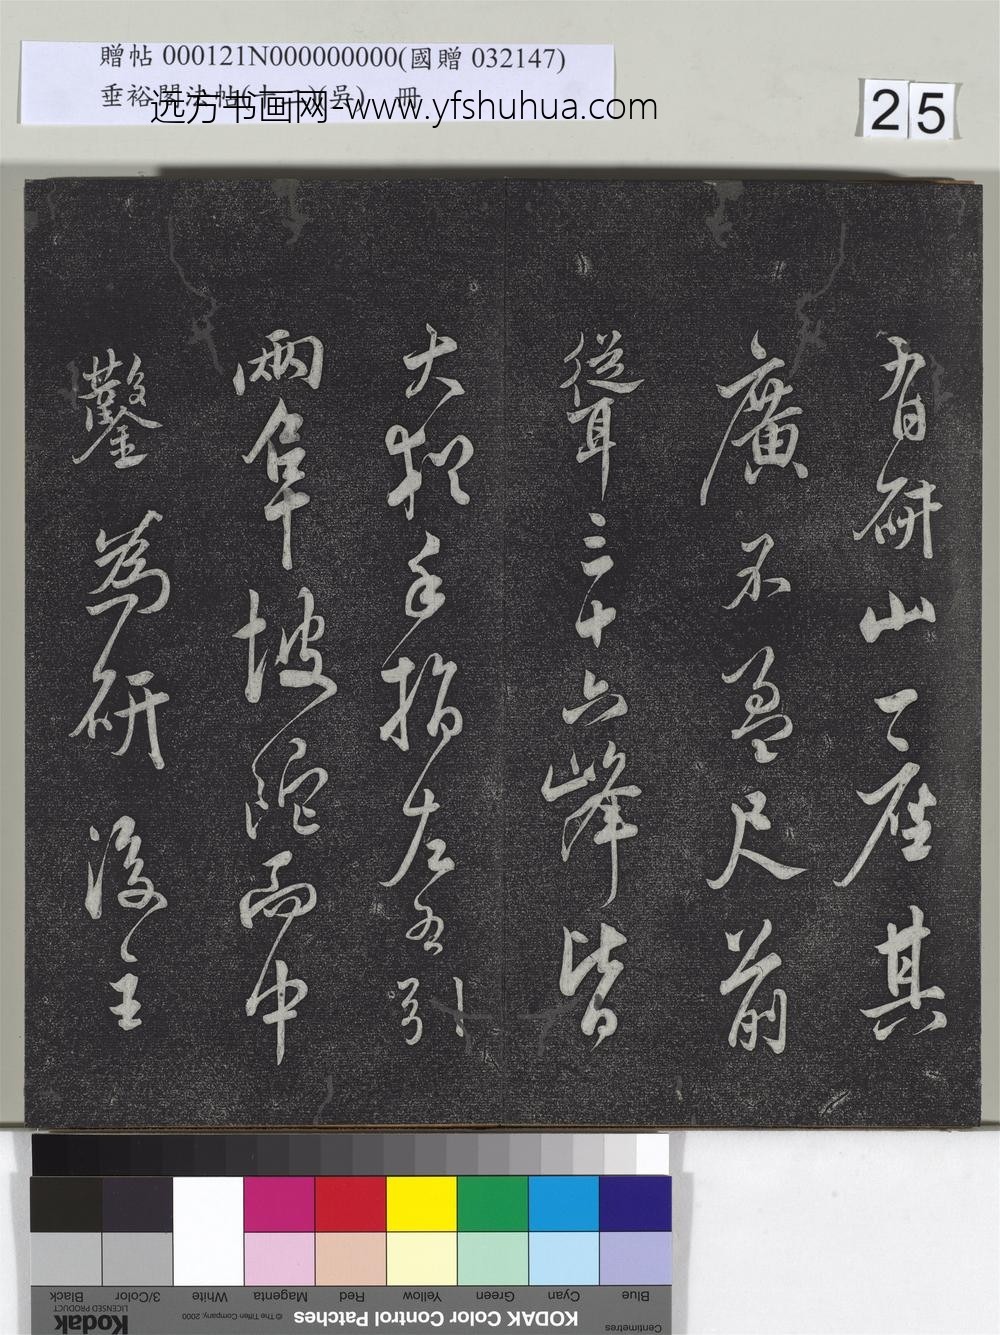 贈帖 000121N000000000(國贈 032147)
垂裕閣法帖(吳) 冊
远方书画网-www.yfshuhua.com
25
有研山一座其
廣不盈尺前
聳三十六峰皆
大猶手指左右引
兩阜坡陀而中
鑿為研後主
Black
3/Color
White
Magenta
Red
Yellow
Green
Cyan
Blue
Kodak
LICENSED PRODUCT
© The Tiffen Company, 2000
KODAK Color Control Patches
Centimetres